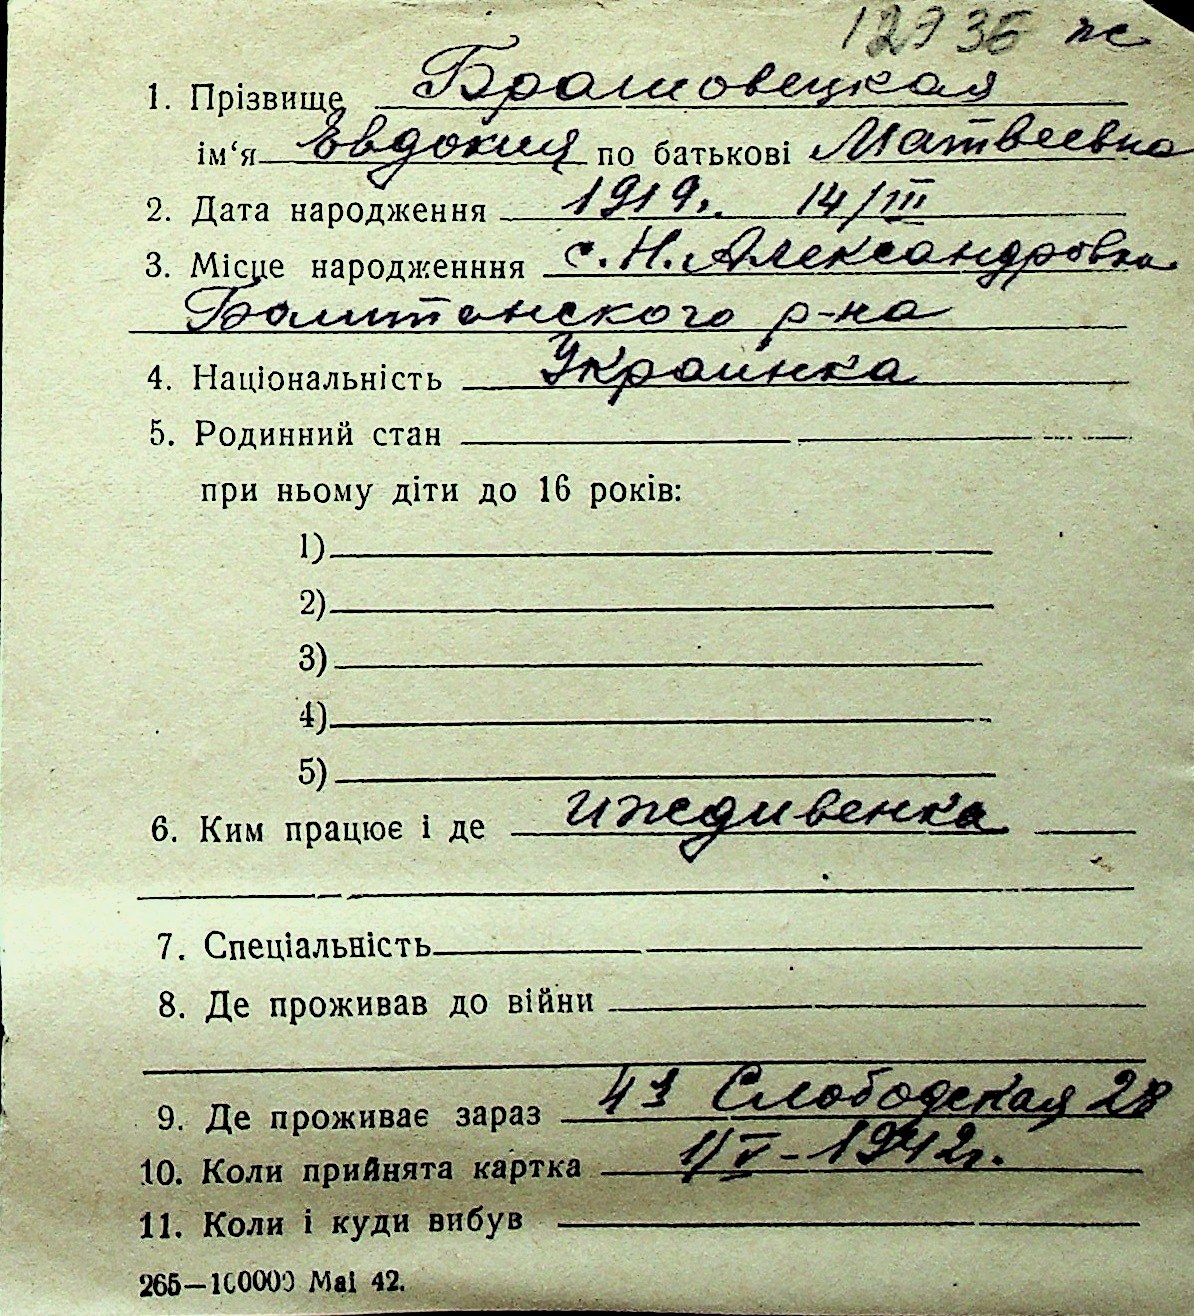 12936 ж
1. Прізвище Брашовецкая
ім‘я Евдокия по батькові Матвеевна
2. Дата народження 1919г. 14/III
3. Місце народженння с. Н. Александровка
Баштанского р-на
4. Національність Украинка
5. Родинний стан
при ньому діти до 16 років:
1)
2)
3)
4)
5)
6. Ким працює і де иждивенка
7. Спеціальність
8. Де проживав до війни
9. Де проживає зараз 43 Слободская 28
10. Коли прийнята картка 1/V-1942г.
11. Коли і куди вибув
265—100000 Mai 42.